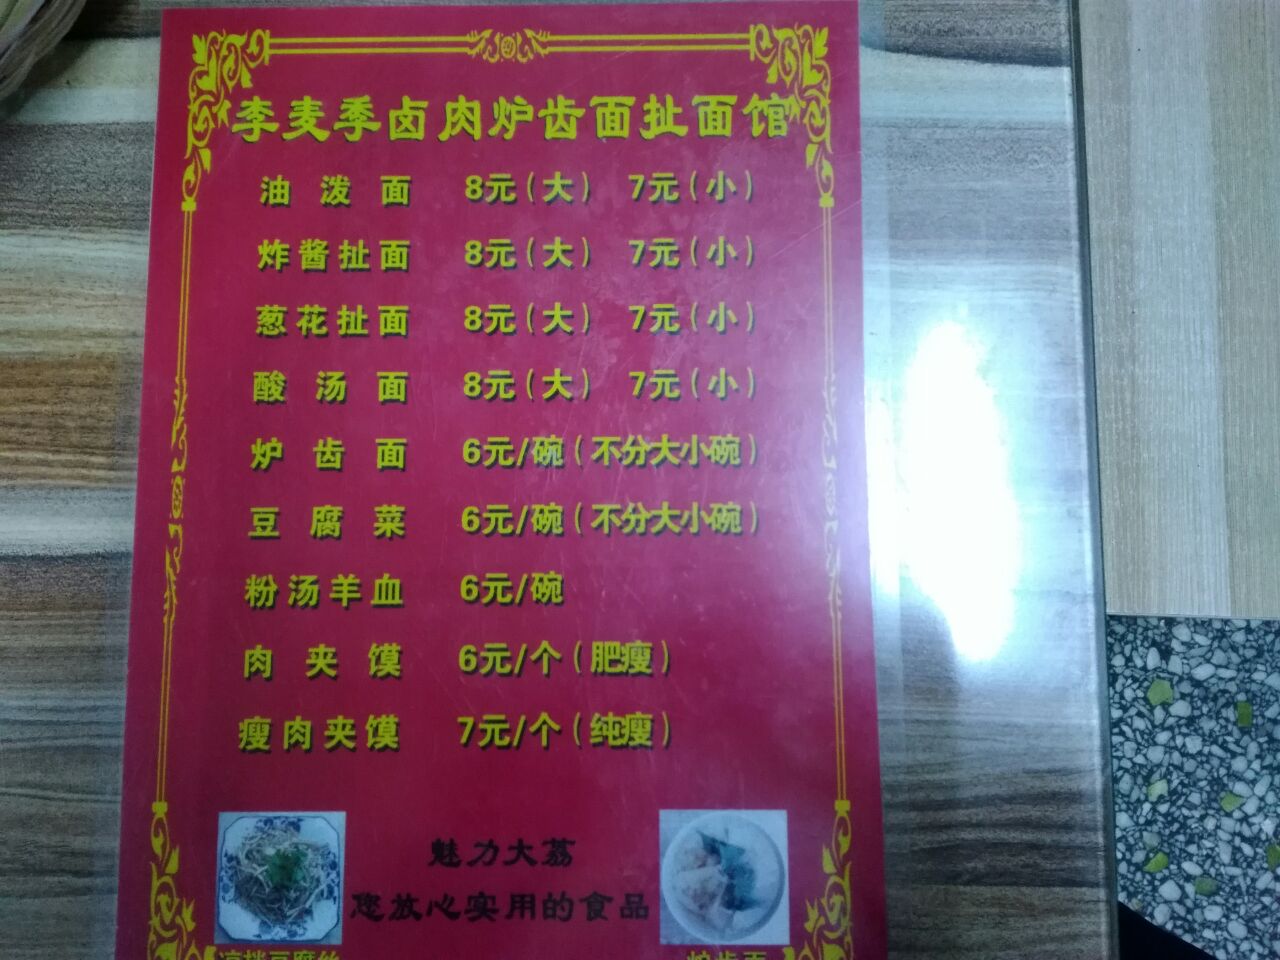 李麦季卤肉炉齿面扯面馆
油泼面 8元（大） 7元（小）
炸酱扯面 8元（大） 7元（小）
葱花扯面 8元（大） 7元（小）
酸汤面 8元（大） 7元（小）
炉齿面 6元/碗（不分大小碗）
豆腐菜 6元/碗（不分大小碗）
粉汤羊血 6元/碗
肉夹馍 6元/个（肥瘦）
瘦肉夹馍 7元/个（纯瘦）
魅力大荔
您放心实用的食品
凉拌豆腐丝 炉齿面